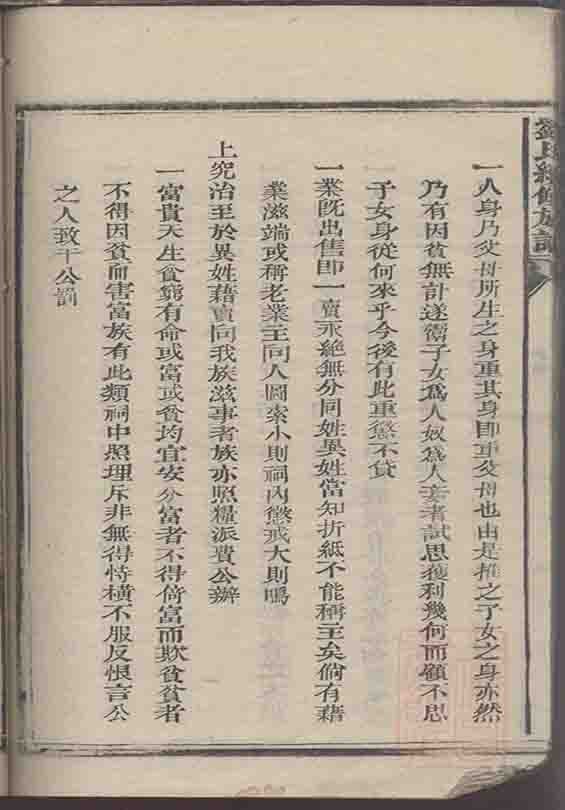 劉氏續修族譜
一人身乃父母所生之身重其身即重父母也由是推之子女之身亦然
乃有因貧無計遂鬻子女爲人奴爲人妾者試思獲利幾何而顧不思
子女身從何來乎今後有此重懲不貸
一業旣出售即一賣永絕無分同姓異姓當知折紙不能稱主矣倘有藉
業滋端或稱老業主向人圖索小則祠內懲戒大則鳴
上究治至於異姓藉賣向我族滋事者族亦照糧派費公辦
一富貴天生貧窮有命或富或貧均宜安分富者不得倚富而欺貧貧者
不得因貧而害富族有此類祠中照理斥非無得恃橫不服反恨言公
之人致干公罰